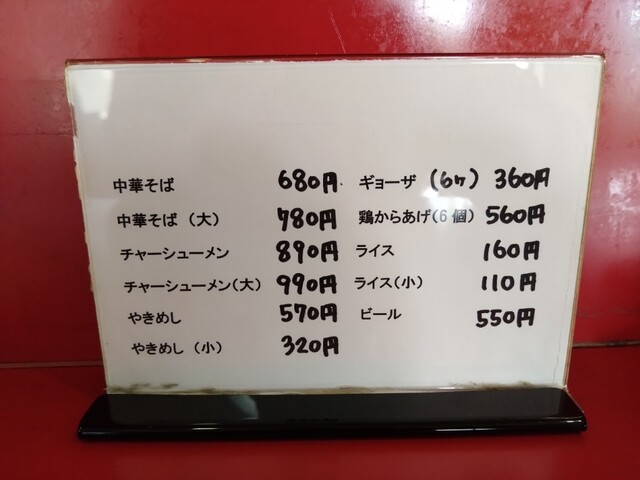 中華そば 680円
中華そば（大） 780円
チャーシューメン 890円
チャーシューメン（大） 990円
やきめし 570円
やきめし（小） 320円
ギョーザ（6ヶ） 360円
鶏からあげ（6個） 560円
ライス 160円
ライス（小） 110円
ビール 550円